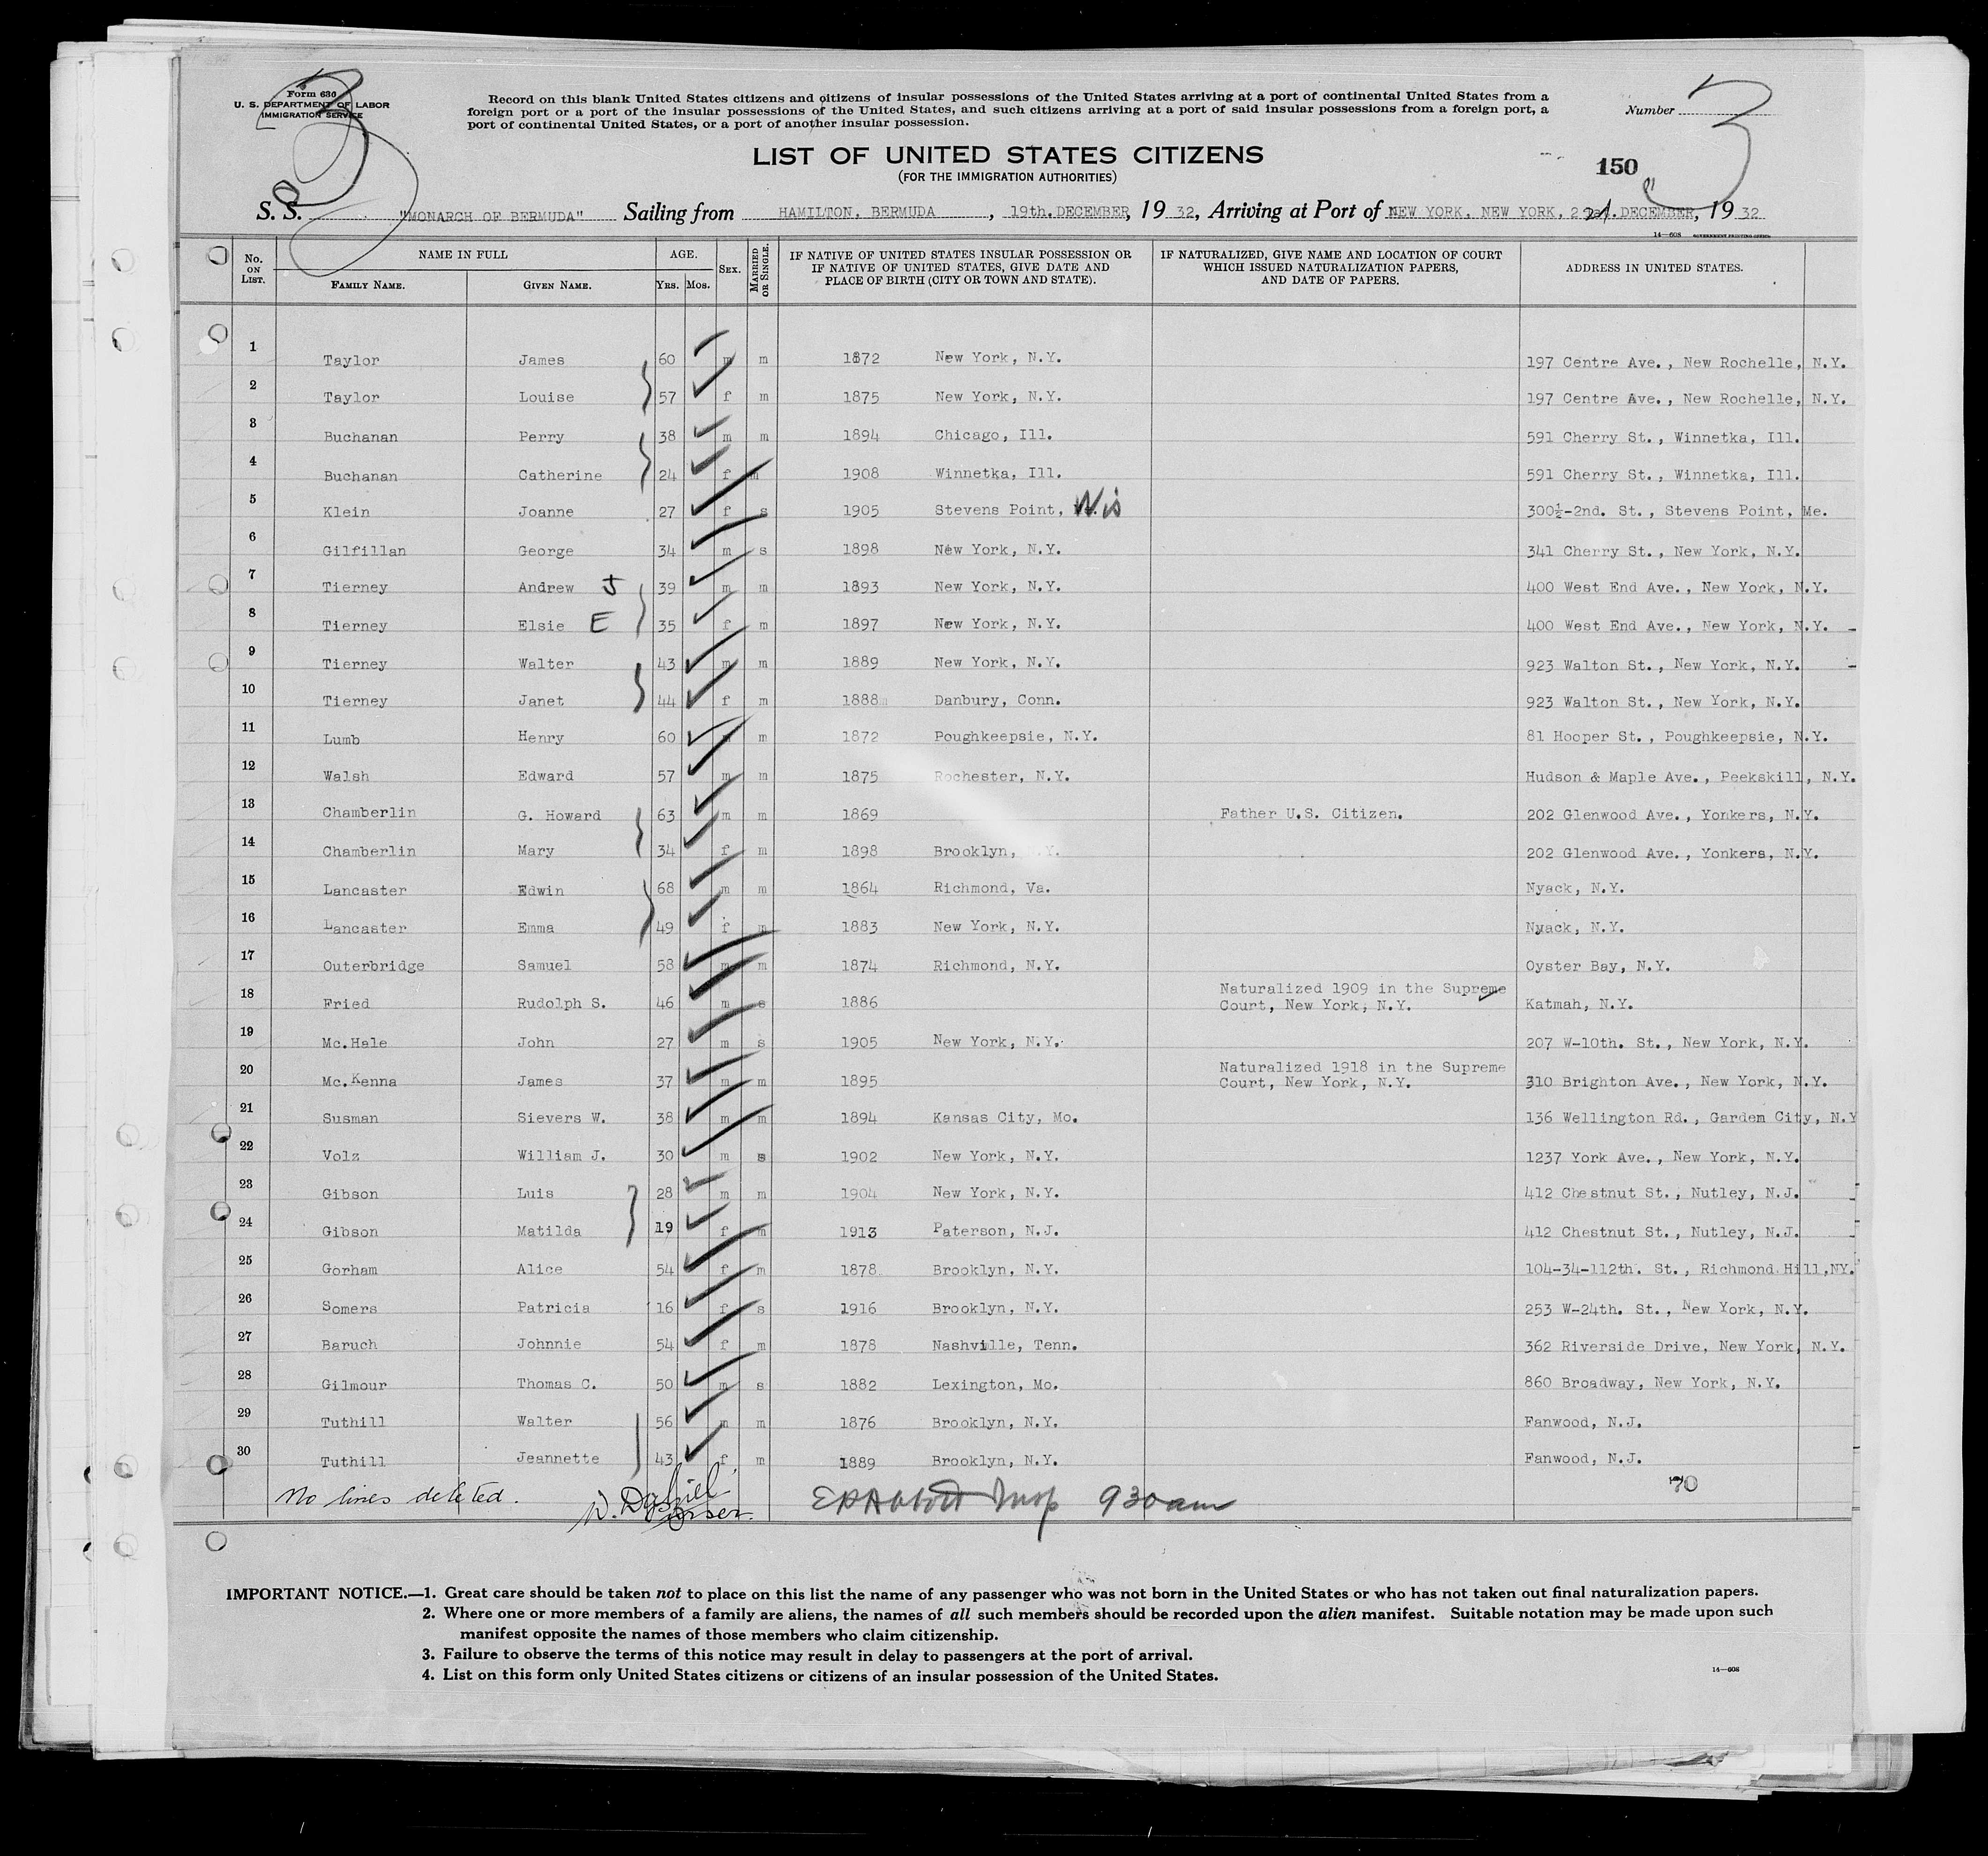 Form 630
U. S. DEPARTMENT OF LABOR
IMMIGRATION SERVICE
3
Record on this blank United States citizens and citizens of insular possessions of the United States arriving at a port of continental United States from a
foreign port or a port of the insular possessions of the United States, and such citizens arriving at a port of said insular possessions from a foreign port, a
port of continental United States, or a port of another insular possession.
Number 3
LIST OF UNITED STATES CITIZENS
(FOR THE IMMIGRATION AUTHORITIES)
150
S. S. "MONARCH OF BERMUDA" Sailing from HAMILTON, BERMUDA, 19th. DECEMBER, 1932, Arriving at Port of NEW YORK, NEW YORK, 21. DECEMBER, 1932
14—608 GOVERNMENT PRINTING OFFICE
No. ON LIST. NAME IN FULL FAMILY NAME. GIVEN NAME. AGE. YRS. MOS. SEX. MARRIED OR SINGLE. IF NATIVE OF UNITED STATES INSULAR POSSESSION OR IF NATIVE OF UNITED STATES, GIVE DATE AND PLACE OF BIRTH (CITY OR TOWN AND STATE). IF NATURALIZED, GIVE NAME AND LOCATION OF COURT WHICH ISSUED NATURALIZATION PAPERS, AND DATE OF PAPERS. ADDRESS IN UNITED STATES.
1 Taylor James 60 m m 1872 New York, N.Y. 197 Centre Ave., New Rochelle, N.Y.
2 Taylor Louise 57 f m 1875 New York, N.Y. 197 Centre Ave., New Rochelle, N.Y.
3 Buchanan Perry 38 m m 1894 Chicago, Ill. 591 Cherry St., Winnetka, Ill.
4 Buchanan Catherine 24 f m 1908 Winnetka, Ill. 591 Cherry St., Winnetka, Ill.
5 Klein Joanne 27 f s 1905 Stevens Point, Wis 300½-2nd. St., Stevens Point, Me.
6 Gilfillan George 34 m s 1898 New York, N.Y. 341 Cherry St., New York, N.Y.
7 Tierney Andrew J 39 m m 1893 New York, N.Y. 400 West End Ave., New York, N.Y.
8 Tierney Elsie E 35 f m 1897 New York, N.Y. 400 West End Ave., New York, N.Y.
9 Tierney Walter 43 m m 1889 New York, N.Y. 923 Walton St., New York, N.Y.
10 Tierney Janet 44 f m 1888 Danbury, Conn. 923 Walton St., New York, N.Y.
11 Lumb Henry 60 m m 1872 Poughkeepsie, N.Y. 81 Hooper St., Poughkeepsie, N.Y.
12 Walsh Edward 57 m m 1875 Rochester, N.Y. Hudson & Maple Ave., Peekskill, N.Y.
13 Chamberlin G. Howard 63 m m 1869 Father U.S. Citizen. 202 Glenwood Ave., Yonkers, N.Y.
14 Chamberlin Mary 34 f m 1898 Brooklyn, N.Y. 202 Glenwood Ave., Yonkers, N.Y.
15 Lancaster Edwin 68 m m 1864 Richmond, Va. Nyack, N.Y.
16 Lancaster Emma 49 f m 1883 New York, N.Y. Nyack, N.Y.
17 Outerbridge Samuel 58 m m 1874 Richmond, N.Y. Oyster Bay, N.Y.
18 Fried Rudolph S. 46 m s 1886 Naturalized 1909 in the Supreme Court, New York, N.Y. Katmah, N.Y.
19 Mc.Hale John 27 m s 1905 New York, N.Y. 207 W-10th. St., New York, N.Y.
20 Mc.Kenna James 37 m m 1895 Naturalized 1918 in the Supreme Court, New York, N.Y. 310 Brighton Ave., New York, N.Y.
21 Susman Sievers W. 38 m m 1894 Kansas City, Mo. 136 Wellington Rd., Gardem City, N.Y
22 Volz William J. 30 m s 1902 New York, N.Y. 1237 York Ave., New York, N.Y.
23 Gibson Luis 28 m m 1904 New York, N.Y. 412 Chestnut St., Nutley, N.J.
24 Gibson Matilda 19 f m 1913 Paterson, N.J. 412 Chestnut St., Nutley, N.J.
25 Gorham Alice 54 f m 1878 Brooklyn, N.Y. 104-34-112th. St., Richmond Hill, NY.
26 Somers Patricia 16 f s 1916 Brooklyn, N.Y. 253 W-24th. St., New York, N.Y.
27 Baruch Johnnie 54 f m 1878 Nashville, Tenn. 362 Riverside Drive, New York, N.Y.
28 Gilmour Thomas C. 50 m s 1882 Lexington, Mo. 860 Broadway, New York, N.Y.
29 Tuthill Walter 56 m m 1876 Brooklyn, N.Y. Fanwood, N.J.
30 Tuthill Jeannette 43 f m 1889 Brooklyn, N.Y. Fanwood, N.J.
No lines deleted. Purser. Insp 930am 70
IMPORTANT NOTICE.—1. Great care should be taken not to place on this list the name of any passenger who was not born in the United States or who has not taken out final naturalization papers.
2. Where one or more members of a family are aliens, the names of all such members should be recorded upon the alien manifest. Suitable notation may be made upon such
manifest opposite the names of those members who claim citizenship.
3. Failure to observe the terms of this notice may result in delay to passengers at the port of arrival.
4. List on this form only United States citizens or citizens of an insular possession of the United States.
14—608